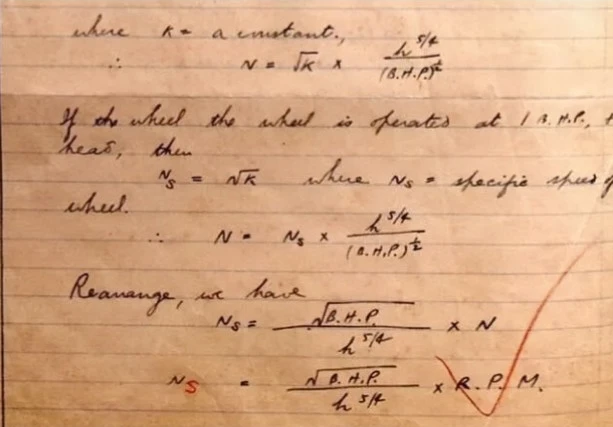 where K = a constant.,
∴ N = √K × h^5/4 / (B.H.P.)^½
If the wheel the wheel is operated at 1 B.H.P.,
head, then
Ns = √K where Ns = specific speed
wheel.
∴ N = Ns × h^5/4 / (B.H.P.)^½
Rearange, we have
Ns = √B.H.P. / h^5/4 × N
Ns = √B.H.P. / h^5/4 × R.P.M.